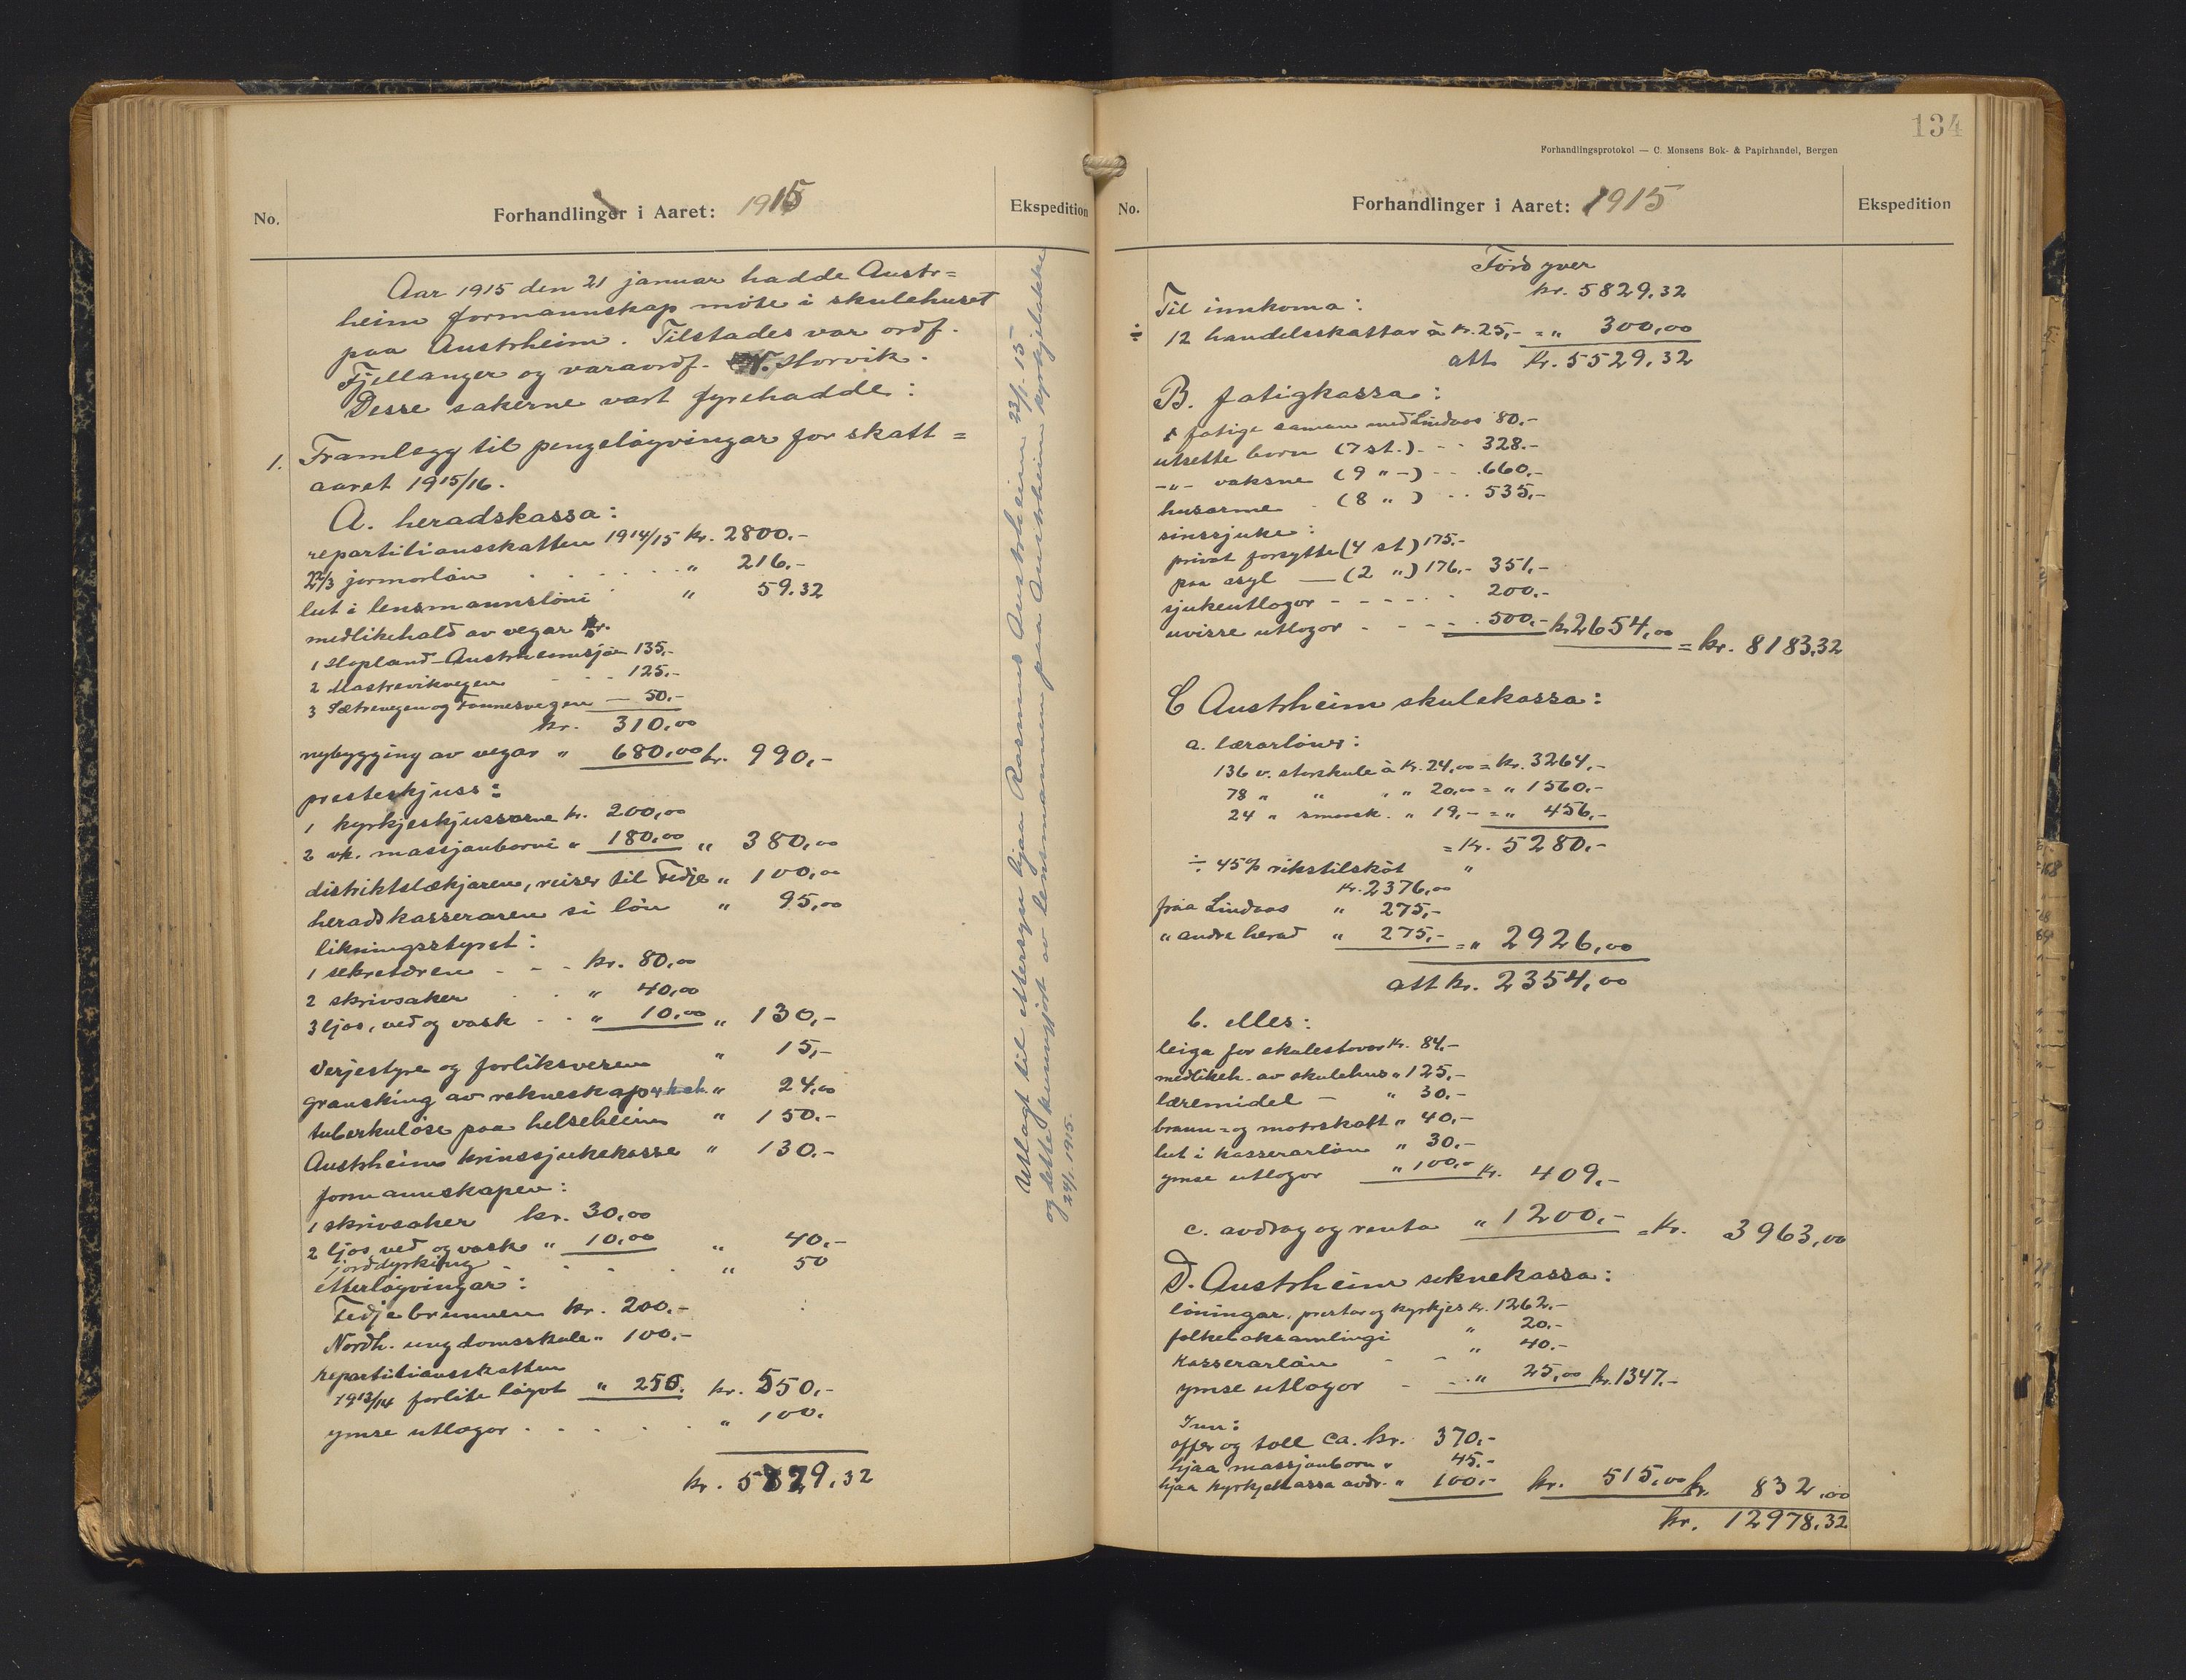 No.
Forhandlinger i Aaret: 1915
Ekspedition
Aar 1915 den 21 januar hadde Austr=
heim formannskap møte i skulehuset
paa Austrheim. Tilstades var ordf.
Fjellanger og varaordf. N. Horvik.
Desse sakerne vart fyrehadde:
1. Framlegg til pengeløgvingar for skatt=
aaret 1915/16.
A. heradskassa:
repartitiansskatten 1914/15 kr. 2800.-
2/3 jormorløn . . . . . " 216.-
lut i lensmannsløni " 59.32
medlikehald av vegar kr.
1 Hopland-Austrheimsjøen 135,-
2 Mastrevikvegen - - - 125.-
3 Sætrevegen og Fonnesvegen — 50.-
kr. 310,00
nybygging av vegar " 680,00 kr. 990,-
presteskjuss:
1 kyrkjeskjussarne kr. 200,00
2 vk. massjonborni " 180,00 " 380,00
distriktslækjaren, reiser til Fedje " 100,00
heradskasseraren si løn " 95,00
likningsstyret:
1 sekretæren - - - kr. 80,00
2 skrivsaker . . " 40,00
3 ljos, ved og vask - - " 10,00 " 130,-
Verjestyre og forliksvesen " 15,-
Gransking av rekneskap " 24,00
tuberkuløse paa helseheim " 150.-
Austrheim krinssjukekasse " 130.-
formannskapen:
1 skrivsaker kr. 30,00
2 ljos, ved og vask " 10,00 " 40.-
jorddyrking - . . . . " 50
etterløgvingar:
Fedjebrunnen kr. 200.-
Nordh. ungdomsskule " 100.-
repartitiansskatten
1913/14 forlite løgvt " 250. kr. 550,-
ymse utlogor . . . . . " 100.
kr. 5829,32
Utlagt til ettersyn hjaa Rasmus Austrheim 23/1-15
og dette kunngjort av lensmannen paa Austrheim kyrkjebakke
24/1-1915.
134
Forhandlingsprotokol — C. Monsens Bok- & Papirhandel, Bergen
No.
Forhandlinger i Aaret: 1915
Ekspedition
Førd yver
kr. 5829,32
Til innkoma:
÷ 12 handelsskattar à kr. 25,- = " 300,00
att kr. 5529,32
B. fatigkassa:
fatige saman med Lindaas 80.-
utsette born (7 st.) - - 328.-
-"- vaksne (9 "-) - - 660,-
husarme . (8 ") . . 535,-
sinssjuke:
privat forsytte (4 st) 175.-
paa asyl — (2 ") 176,- 351,-
sjukeutlogor - - - - - 200.-
uvisse utlogor - - - - 500,- kr. 2654,00 = kr. 8183,32
C Austrheim skulekassa:
a. lærarløner:
136 v. storskule à kr. 24,00 = kr. 3264,-
78 " " " " 20,00 = " 1560,-
24 " smørsk. " 19,- = " 456,-
= kr. 5280,-
÷ 45% rikstilskòt "
kr. 2376,00
fraa Lindaas " 275,-
" andre herad " 275,- = " 2926,00
att kr. 2354,00
b. elles:
leiga for skulestovor kr. 84,-
medlikeh. av skulehus " 125,-
læremidel - " 30,-
brann- og motrskatt " 40,-
lut i kasserarløn " 30.-
ymse utlogor " 100,- kr. 409,-
c. avdrag og renta " 1200,- = kr. 3963,00
D. Austrheim soknekassa:
løningar, prestar og kyrkjes kr. 1262,-
folkeboksamlingi " 20.-
kasserarløn - - " 40.-
ymse utlogor - - " 25,00 kr. 1347,-
Inn:
offer og toll ca. kr. 370,-
hjaa massjonborn " 45,-
hjaa kyrkjekassa avdr. " 100,- kr. 515,00 kr. 832,00
kr. 12978,32